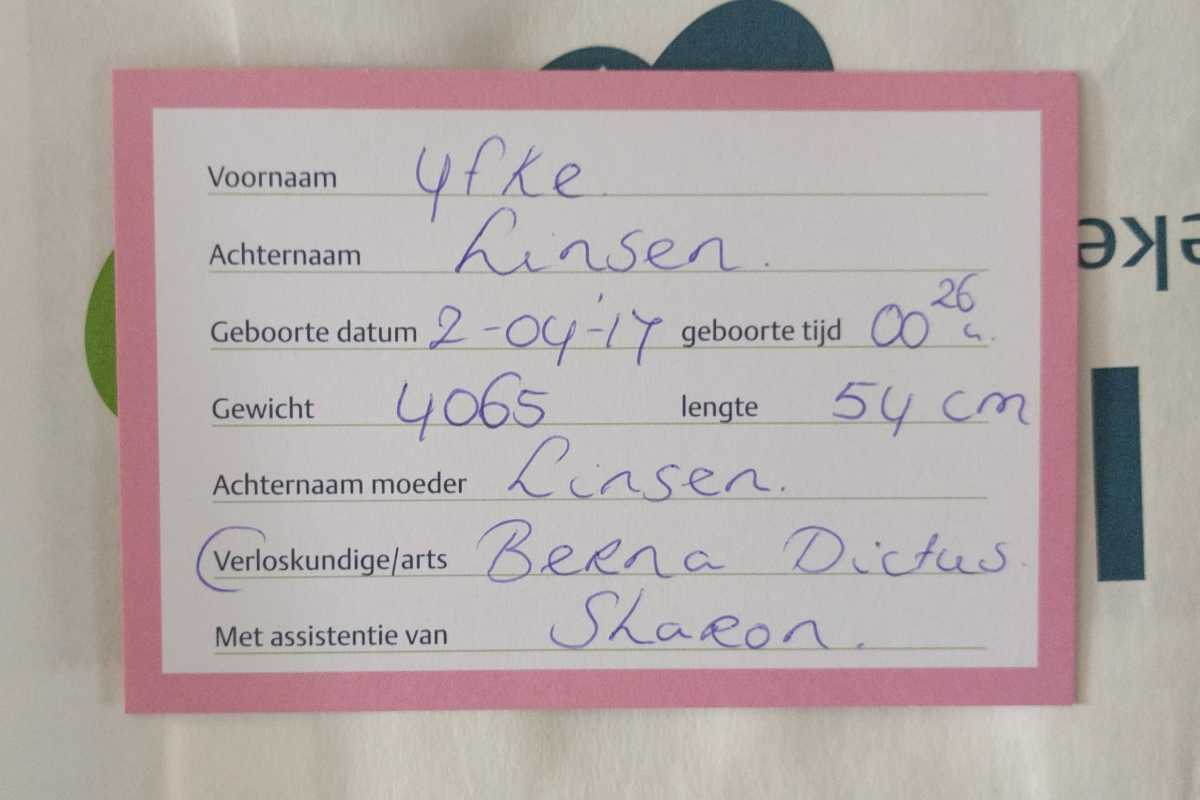 Voornaam Yfke
Achternaam Linsen.
Geboorte datum 2-04-'17 geboorte tijd 00 26 u.
Gewicht 4065 lengte 54 cm
Achternaam moeder Linsen.
Verloskundige/arts Berna Dictus.
Met assistentie van Sharon.
eke